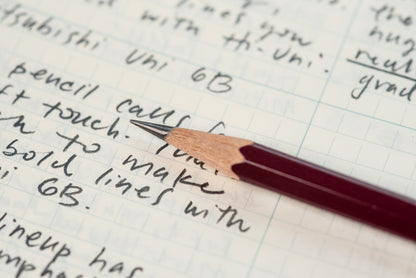 lines you
with Hi-Uni.
the
real
grad
tsubishi Uni 6B
pencil calls
ft touch.
to make
bold lines with
6B.
lineup has